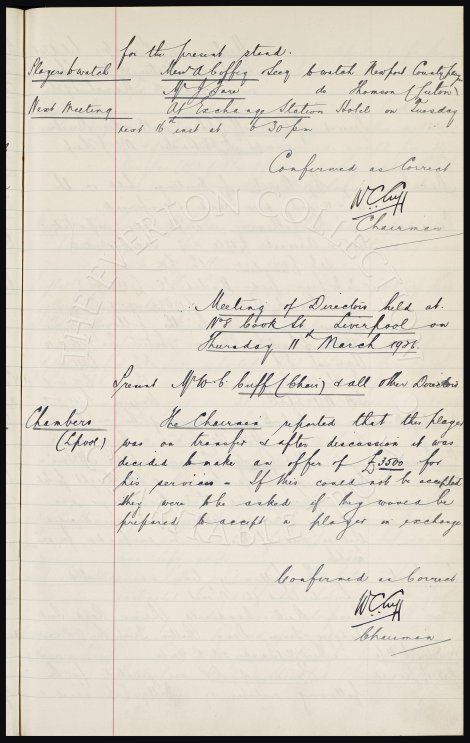 for the present stand.
Players to watch Messrs A Coffey & Secy to watch Newport County players
Mr J Sare do Thomson (Luton)
Next Meeting At Exchange Station Hotel on Tuesday
next 16th inst at 6 30pm
Confirmed as Correct
W.C. Cuff
Chairman
Meeting of Directors held at
No 8 Cook St Liverpool on
Thursday 11th March 1926.
Present Mr W.C. Cuff (Chair) & all other Directors
Chambers The Chairman reported that this player
(Lpool) was on transfer & after discussion it was
decided to make an offer of £3500 for
his services - If this could not be accepted
they were to be asked if they would be
prepared to accept a player in exchange
Confirmed as Correct
W.C. Cuff
Chairman
THE EVERTON COLLECTION
CHARITABLE TRUST